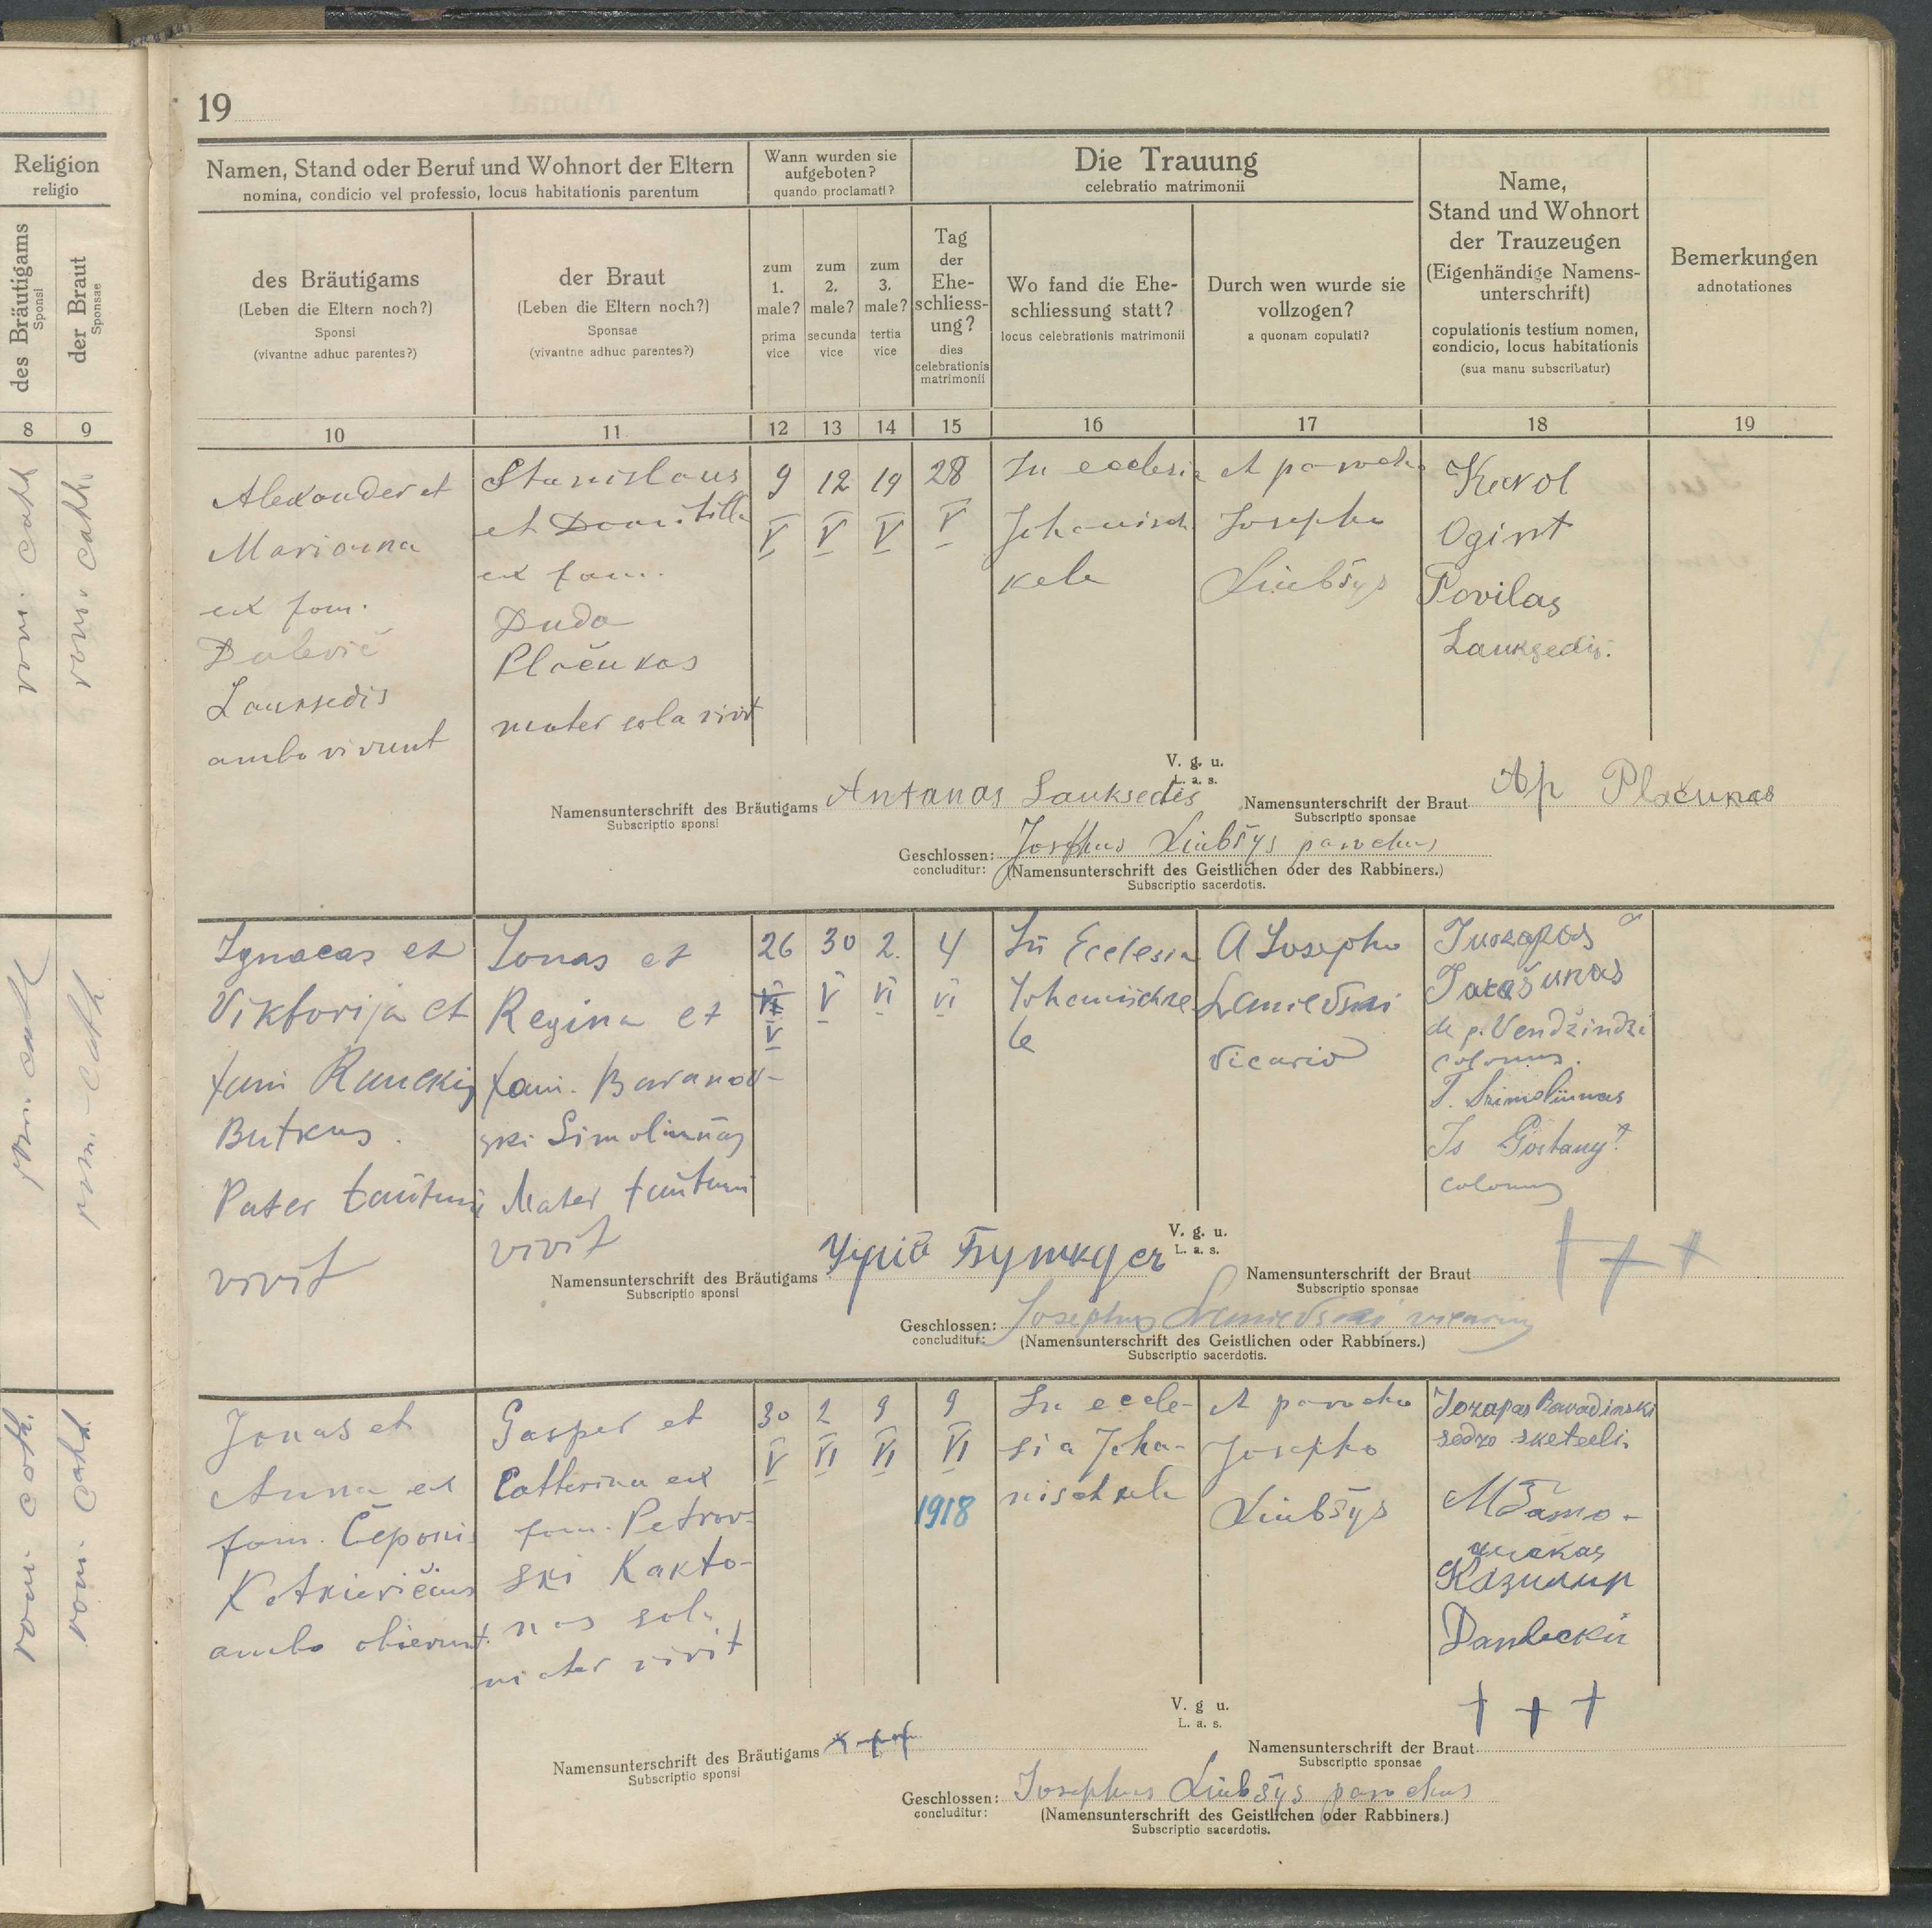 19
Religion
religio
des Bräutigams
Sponsi
der Braut
Sponsae
8
9
rom. cath.
rom. cath.
rom. cath
rom. cath
rom. cath.
rom. cath.
Namen, Stand oder Beruf und Wohnort der Eltern
nomina, condicio vel professio, locus habitationis parentum
Wann wurden sie
aufgeboten?
quando proclamati?
Die Trauung
celebratio matrimonii
Name,
Stand und Wohnort
der Trauzeugen
(Eigenhändige Namens-
unterschrift)
copulationis testium nomen,
condicio, locus habitationis
(sua manu subscribatur)
Bemerkungen
adnotationes
des Bräutigams
(Leben die Eltern noch?)
Sponsi
(vivantne adhuc parentes?)
der Braut
(Leben die Eltern noch?)
Sponsae
(vivantne adhuc parentes?)
zum
1.
male?
prima
vice
zum
2.
male?
secunda
vice
zum
3.
male?
tertia
vice
Tag
der
Ehe-
schliess-
ung?
dies
celebrationis
matrimonii
Wo fand die Ehe-
schliessung statt?
locus celebrationis matrimonii
Durch wen wurde sie
vollzogen?
a quonam copulati?
10
11
12
13
14
15
16
17
18
19
Alexander et
Marianna
ex fam.
Dulevič
Lauksedis
ambo vivunt
Stanislaus
et Domitilla
ex fam.
Duda
Plačunas
mater sola vivit
9
V
12
V
19
V
28
V
In ecclesia
Johanisch
kele
A parocho
Josepho
Liubšys
Karol
Ogint
Povilas
Lauksedis.
V. g. u.
L. a. s.
Namensunterschrift des Bräutigams Antanas Lauksedis
Subscriptio sponsi
Namensunterschrift der Braut Ap Plačunas
Subscriptio sponsae
Geschlossen: Josephus Liubšys parochus
concluditur: (Namensunterschrift des Geistlichen oder des Rabbiners.)
Subscriptio sacerdotis.
Ignacas et
Viktorija et
fam
Butkus.
Pater tantum
vivit
Jonas et
Regina et
fam. Baranov-
ski Simoliunas
Mater tantum
vivit
26
VI
V
30
V
2.
VI
4
VI
In Ecclesia
Johanischke
le
A Josepho
vicario
Juozapas
de p. Vendžindzi
colonus.
colonus
V. g. u.
L. a. s.
Namensunterschrift des Bräutigams
Subscriptio sponsi
Namensunterschrift der Braut + + +
Subscriptio sponsae
Geschlossen: Josephus vicarius
concluditur: (Namensunterschrift des Geistlichen oder Rabbiners.)
Subscriptio sacerdotis.
Jonas et
Anna ex
fam. Čeponis
ambo obierunt.
Gasper et
Catherina ex
fam. Petrov-
ski Kakto-
nas sola
mater vivit
30
V
2
VI
9
VI
9
VI
1918
In eccle-
sia Joha-
nischkele
A parocho
Josepho
Liubšys
Jozapas
V. g. u.
L. a. s.
Namensunterschrift des Bräutigams + + +
Subscriptio sponsi
Namensunterschrift der Braut + + +
Subscriptio sponsae
Geschlossen: Josephus Liubšys parochus
concluditur: (Namensunterschrift des Geistlichen oder Rabbiners.)
Subscriptio sacerdotis.